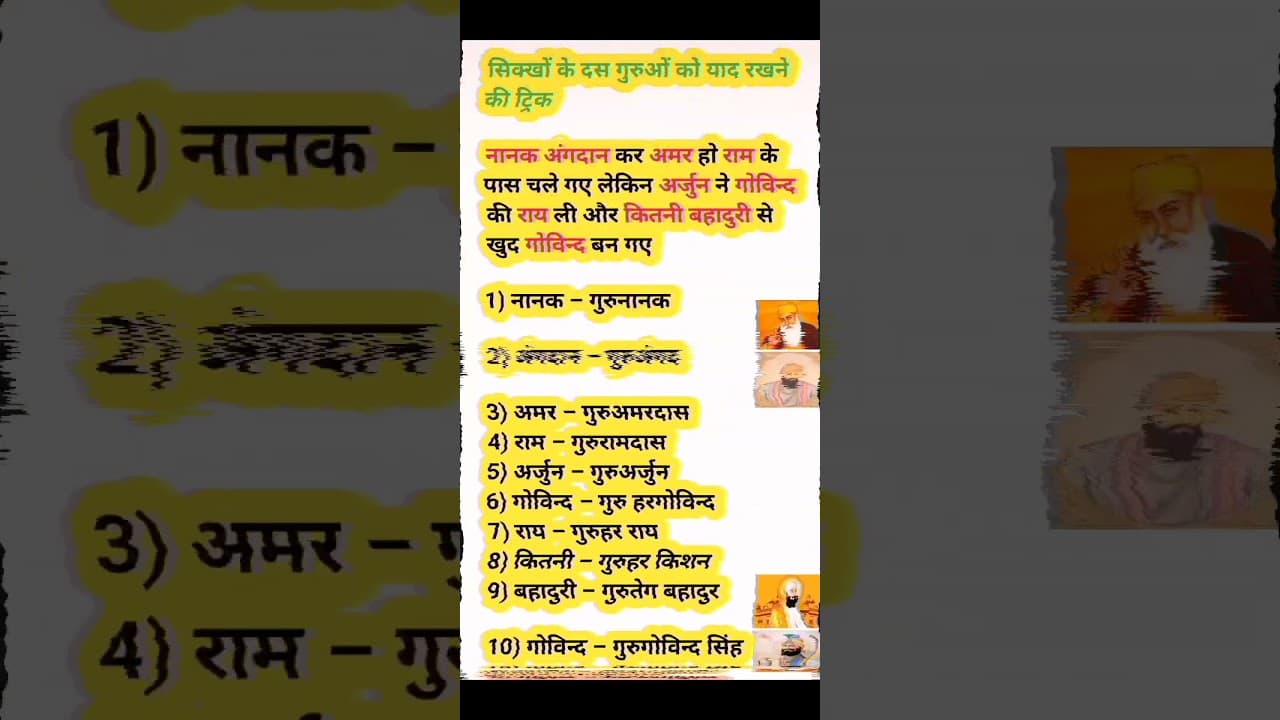 सिक्खों के दस गुरुओं को याद रखने
की ट्रिक
नानक अंगदान कर अमर हो राम के
पास चले गए लेकिन अर्जुन ने गोविन्द
की राय ली और कितनी बहादुरी से
खुद गोविन्द बन गए
1) नानक – गुरुनानक
2) अंगदान – गुरुअंगद
3) अमर – गुरुअमरदास
4) राम – गुरुरामदास
5) अर्जुन – गुरुअर्जुन
6) गोविन्द – गुरु हरगोविन्द
7) राय – गुरुहर राय
8) कितनी – गुरुहर किशन
9) बहादुरी – गुरुतेग बहादुर
10) गोविन्द – गुरुगोविन्द सिंह
1) नानक –
2) अंगदान
3) अमर – गु
4) राम – गु